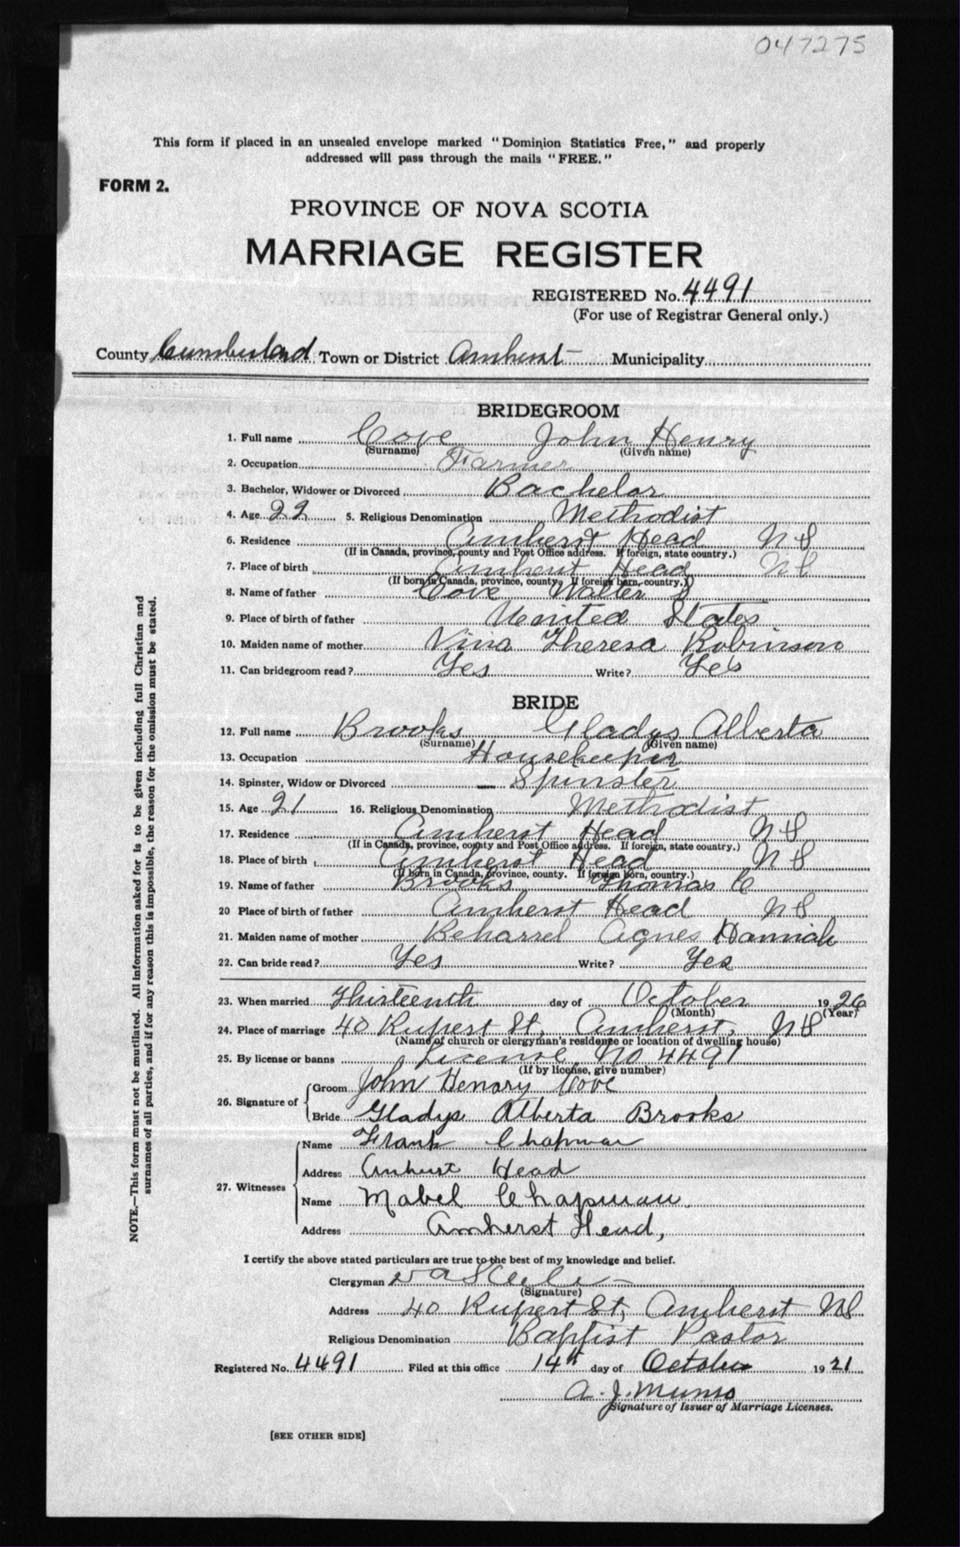 047275
This form if placed in an unsealed envelope marked "Dominion Statistics Free," and properly
addressed will pass through the mails "FREE."
FORM 2.
PROVINCE OF NOVA SCOTIA
MARRIAGE REGISTER
REGISTERED No. 4491
(For use of Registrar General only.)
County Cumberland Town or District Amherst Municipality
BRIDEGROOM
1. Full name Cove John Henry
(Surname) (Given name)
2. Occupation Farmer
3. Bachelor, Widower or Divorced Bachelor
4. Age 22 5. Religious Denomination Methodist
6. Residence Amherst Head NS
(If in Canada, province, county and Post Office address. If foreign, state country.)
7. Place of birth Amherst Head NS
(If born in Canada, province, county. If foreign born, country.)
8. Name of father Cove Walter
9. Place of birth of father United States
10. Maiden name of mother Vina Theresa Robinson
11. Can bridegroom read? Yes Write? Yes
BRIDE
12. Full name Brooks Gladys Alberta
(Surname) (Given name)
13. Occupation Housekeeper
14. Spinster, Widow or Divorced Spinster
15. Age 21 16. Religious Denomination Methodist
17. Residence Amherst Head NS
(If in Canada, province, county and Post Office address. If foreign, state country.)
18. Place of birth Amherst Head NS
(If born in Canada, province, county. If foreign born, country.)
19. Name of father Brooks Thomas C
20 Place of birth of father Amherst Head NS
21. Maiden name of mother Beharrel Agnes Hannah
22. Can bride read? Yes Write? Yes
23. When married Thirteenth day of October 1926
(Month) (Year)
24. Place of marriage 40 Rupert St, Amherst, NS
(Name of church or clergyman's residence or location of dwelling house)
25. By license or banns License No 4491
(If by license, give number)
26. Signature of Groom John Henary Cove
Bride Gladys Alberta Brooks
27. Witnesses Name Frank Chapman
Address Amherst Head
Name Mabel Chapman
Address Amherst Head,
I certify the above stated particulars are true to the best of my knowledge and belief.
Clergyman
(Signature)
Address 40 Rupert St, Amherst NS
Religious Denomination Baptist Pastor
Registered No. 4491 Filed at this office 14th day of October 1921
A. J. Munro
Signature of Issuer of Marriage Licenses.
[SEE OTHER SIDE]
NOTE.—This form must not be mutilated. All information asked for is to be given including full Christian and
surnames of all parties, and if for any reason this is impossible, the reason for the omission must be stated.